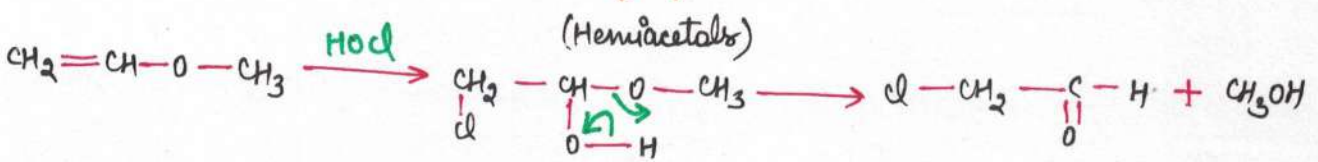 (Hemiacetals)
CH₂=CH—O—CH₃ HOCl CH₂—CH—O—CH₃ Cl—CH₂—C—H + CH₃OH
Cl O—H O